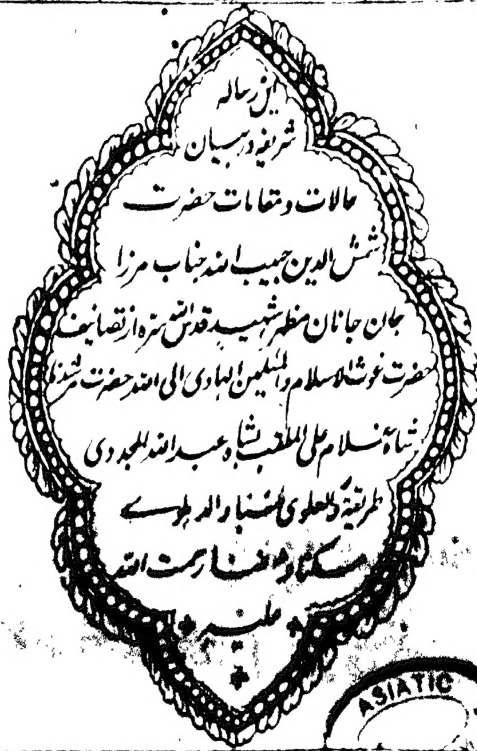 این رساله
شریفه در بیان
حالات و مقامات حضرت
شمس الدین حبیب الله جناب مرزا
جان جانان مظهر شهید قدس الله سره از تصانیف
حضرت غوث الاسلام والمسلمین الهادی الی الله حضرت مرشدنا
شاه غلام علی الملقب بشاه عبد الله المجددی
طریقة والعلوی نسبا والدهلوے
مسکنا و مدفنا رحمت الله
علیه
ASIATIC